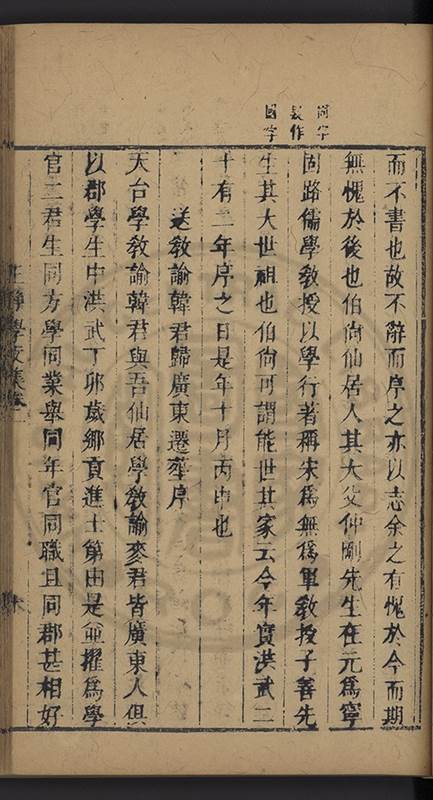 而不書也故不辭而序之亦以志余之有愧於今而期
無愧於後也伯尙仙居人其大父仲剛先生在元爲寧
固路儒學敎授以學行著稱宋爲無爲軍敎授子善先
生其大世祖也伯尙可謂能世其家云今年實洪武二
十有二年序之日是年十月丙申也
送敎諭韓君歸廣東遷葬序
天台學敎諭韓君與吾仙居學敎諭麥君皆廣東人俱
以郡學生中洪武丁卯歲鄉貢進士第由是並擢爲學
官二君生同方學同業舉同年官同職且同郡甚相好
作
國字